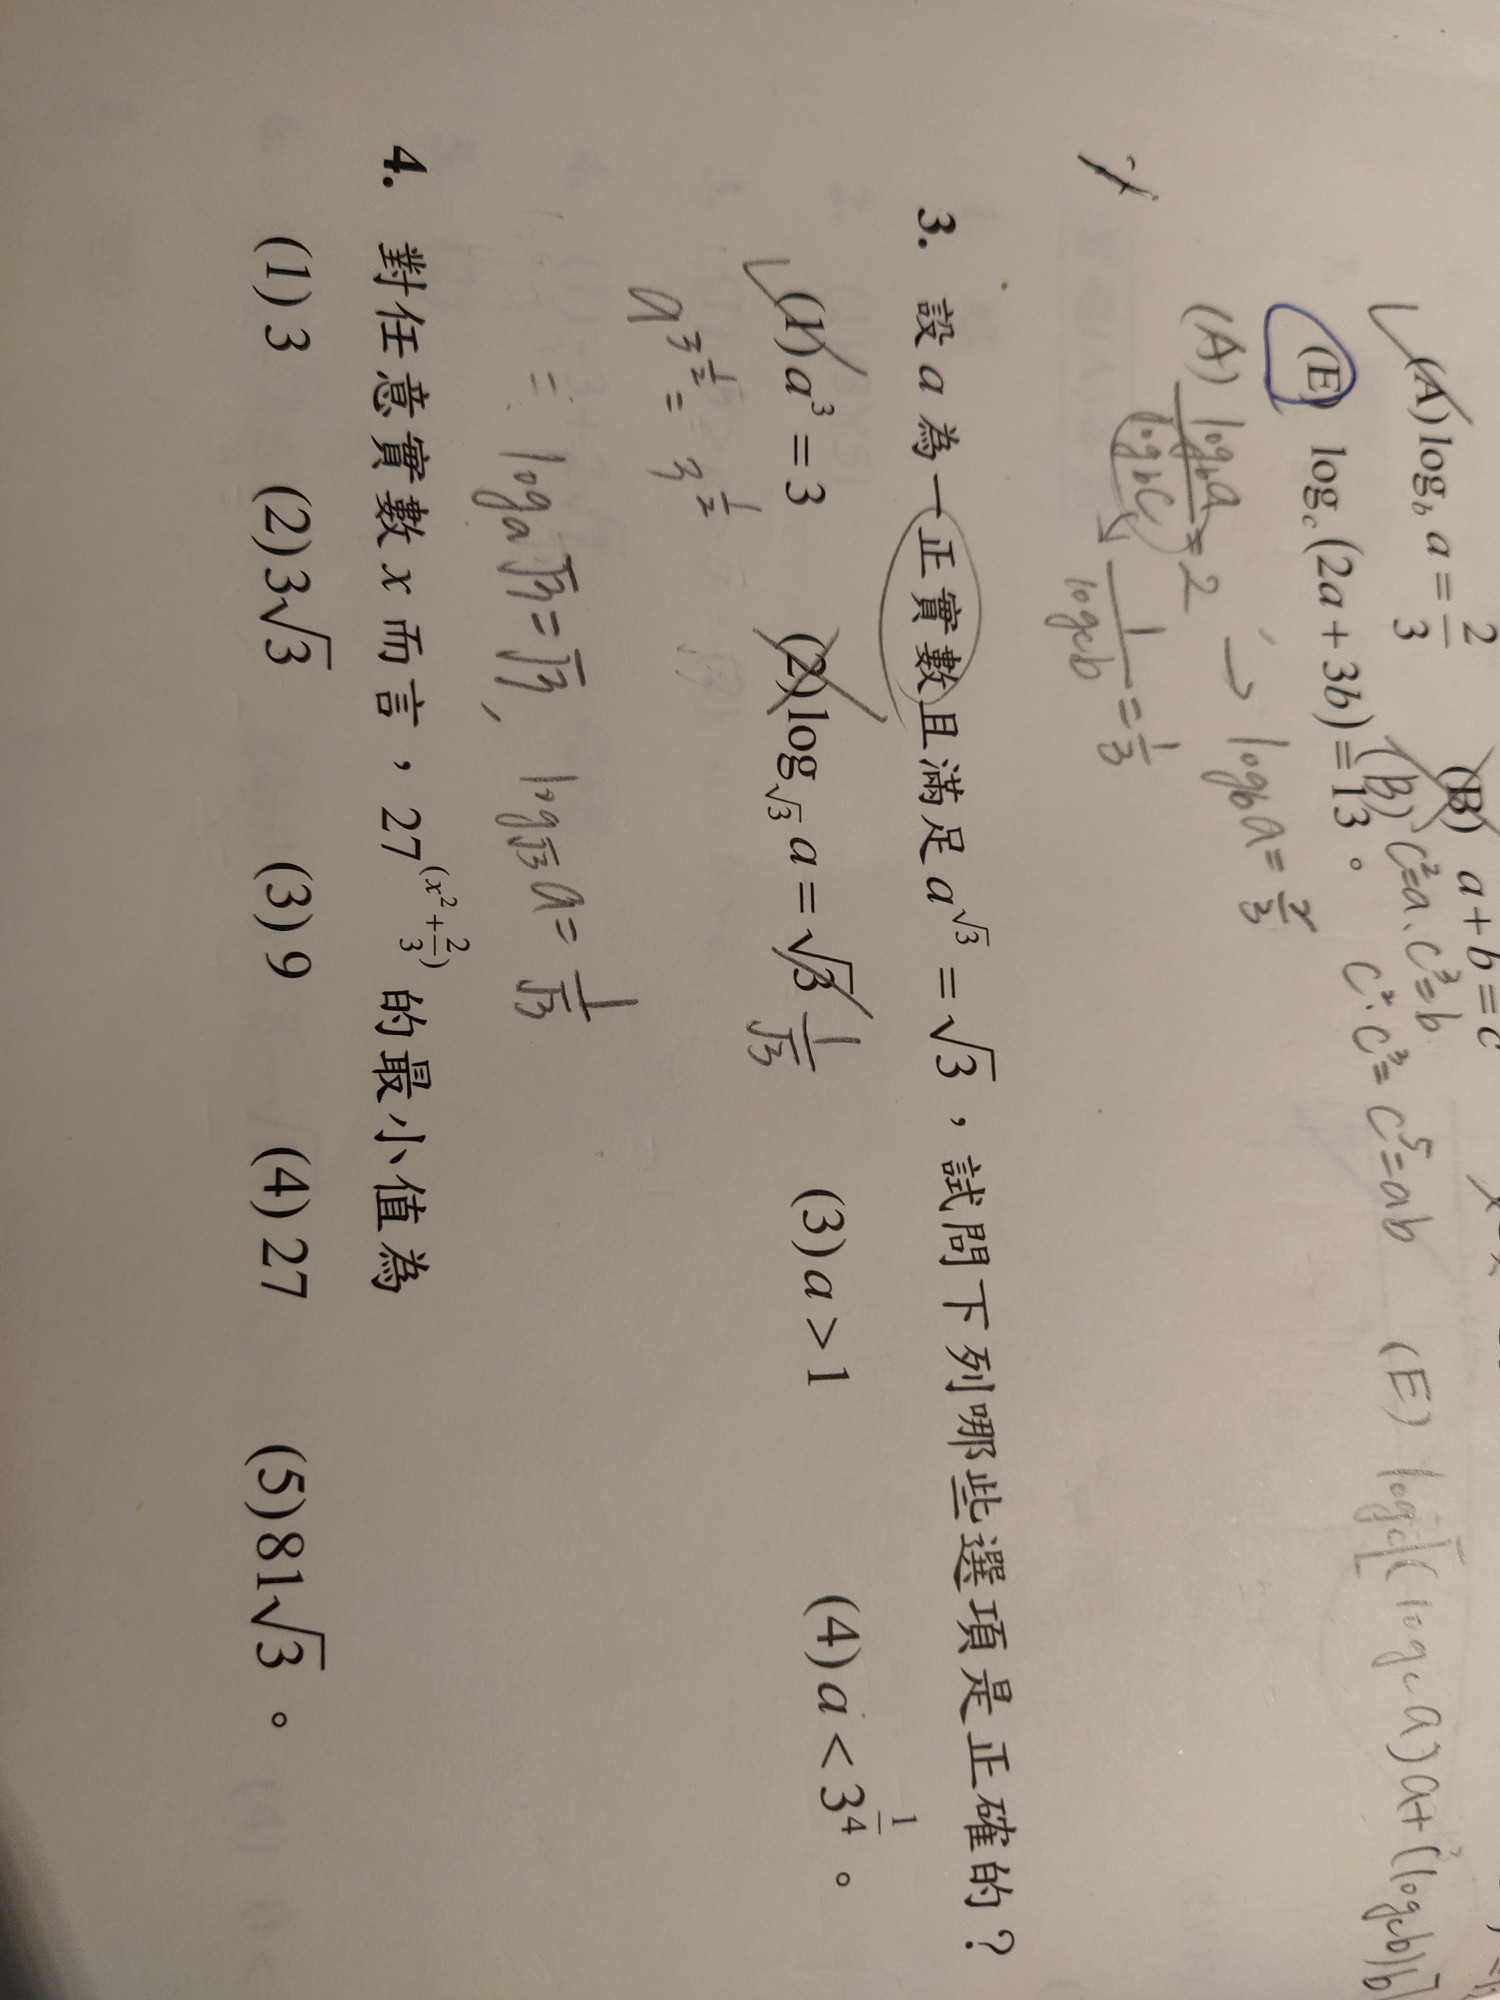 (A) log_b a = 2/3 (B) a + b = c
(E) log_c (2a + 3b) = 13 。
(B) c² = a、c³ = b
c²·c³ = c⁵ = ab
(A) log_b a / log_b c = 2 → log_b a = 2/3
1 / log_c b = 1/3
3. 設 a 為一正實數且滿足 a^√3 = √3，試問下列哪些選項是正確的？
(1) a³ = 3 (2) log_√3 a = √3 1/√3 (3) a > 1 (4) a < 3^(1/4)。
a^(3·1/2) = 3^(1/2)
= log_a √3 = √3, log_√3 a = 1/√3
4. 對任意實數 x 而言，27^(x² + 2/3) 的最小值為
(1) 3 (2) 3√3 (3) 9 (4) 27 (5) 81√3 。